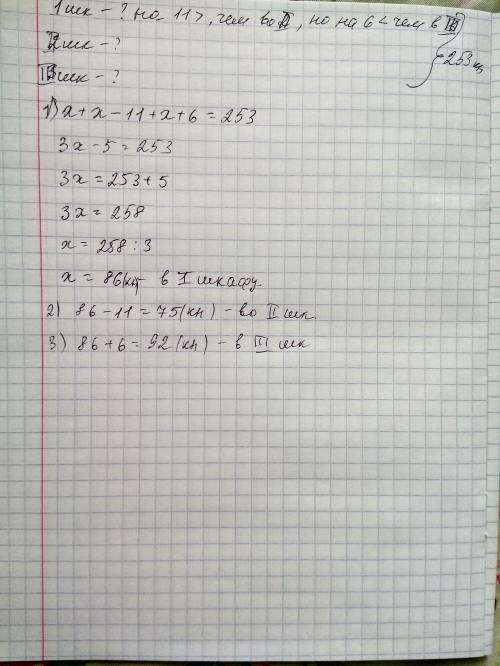 1 шк - ? на 11 >, чем во II, но на 6 < чем в III
II шк - ?
III шк - ?
253
1) x + x - 11 + x + 6 = 253
3x - 5 = 253
3x = 253 + 5
3x = 258
x = 258 : 3
x = 86(кн) - в I шкафу.
2) 86 - 11 = 75 (кн) - во II шк
3) 86 + 6 = 92 (кн) - в III шк